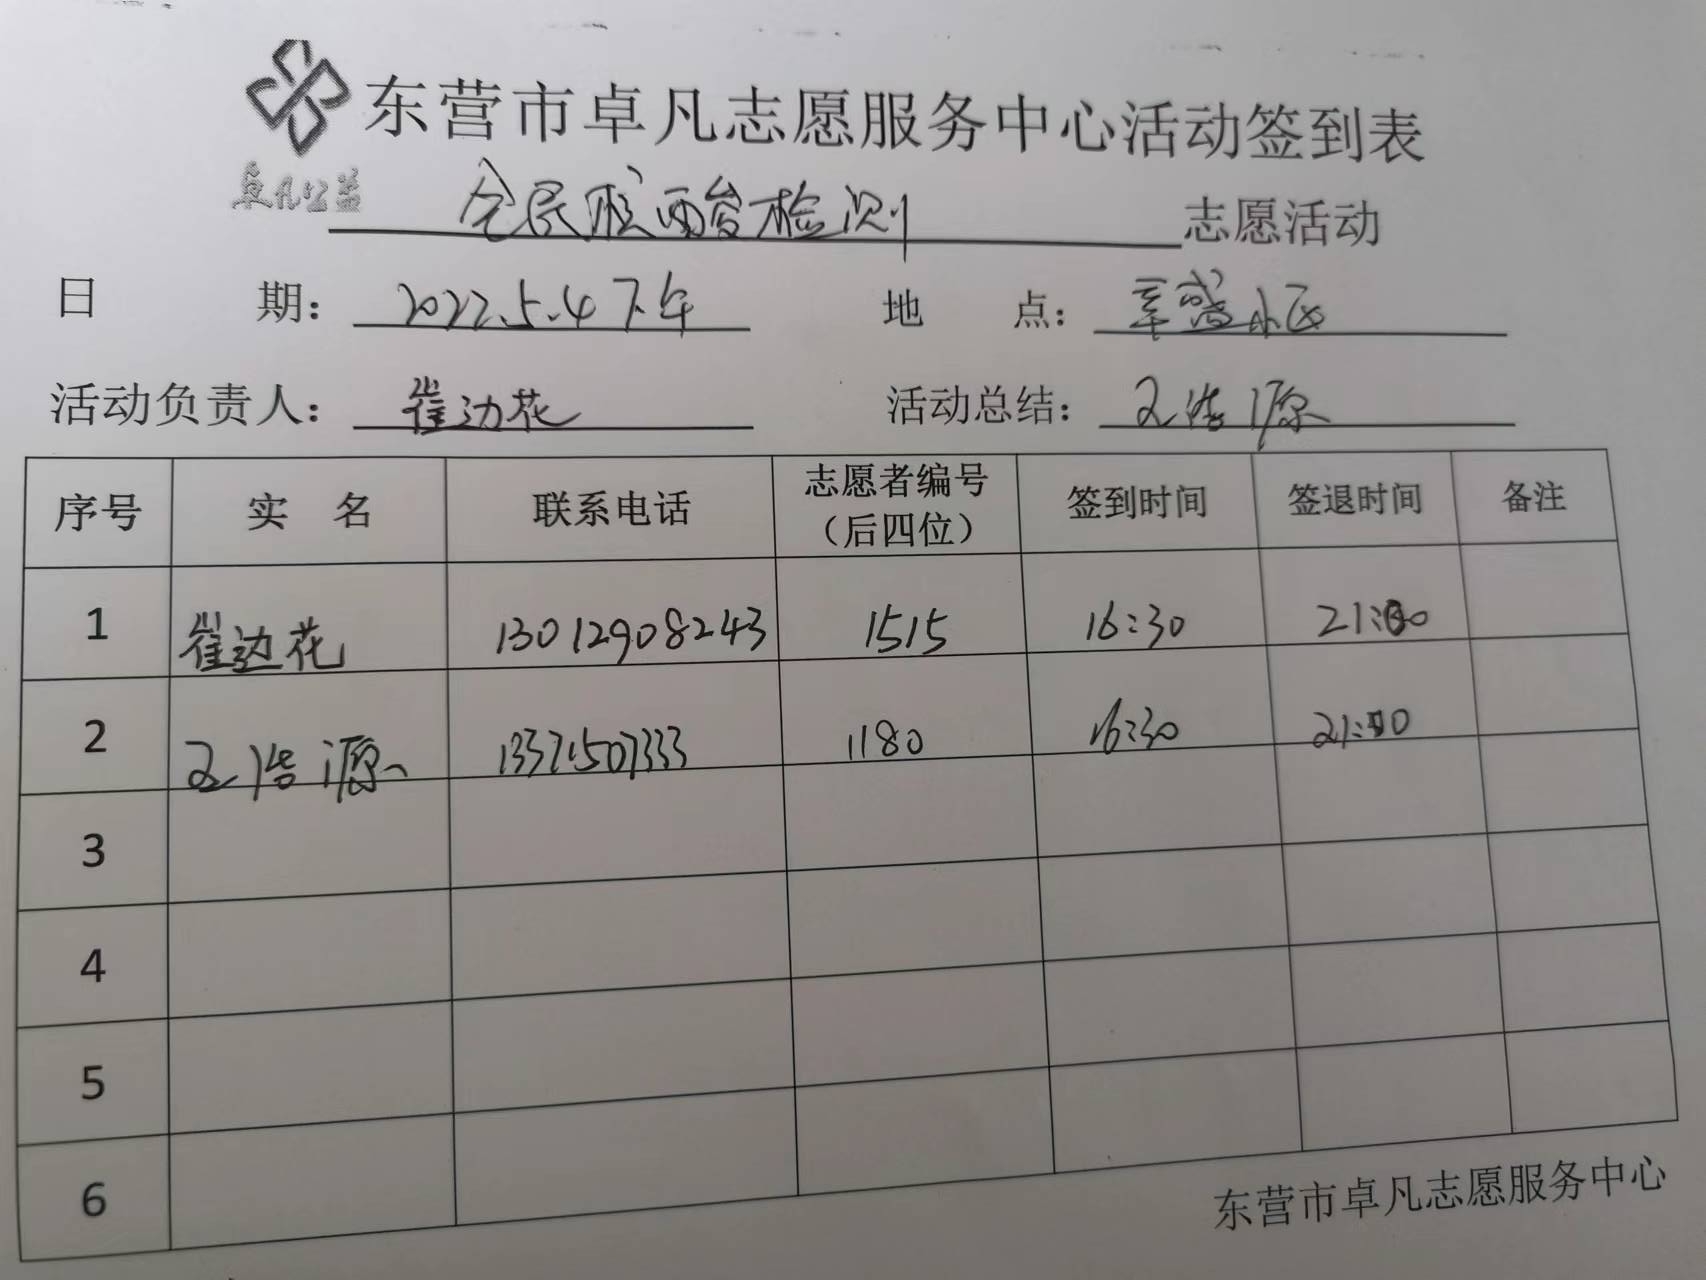 东营市卓凡志愿服务中心活动签到表
卓凡公益
全民核酸检测 志愿活动
日 期： 2022.5.4下午 地 点： 莘盛小区
活动负责人： 崔边花 活动总结： 王浩源
序号 实 名 联系电话 志愿者编号（后四位） 签到时间 签退时间 备注
1 崔边花 13012908243 1515 16:30 21:00
2 王浩源 13371507333 1180 16:30 21:00
3
4
5
6
东营市卓凡志愿服务中心